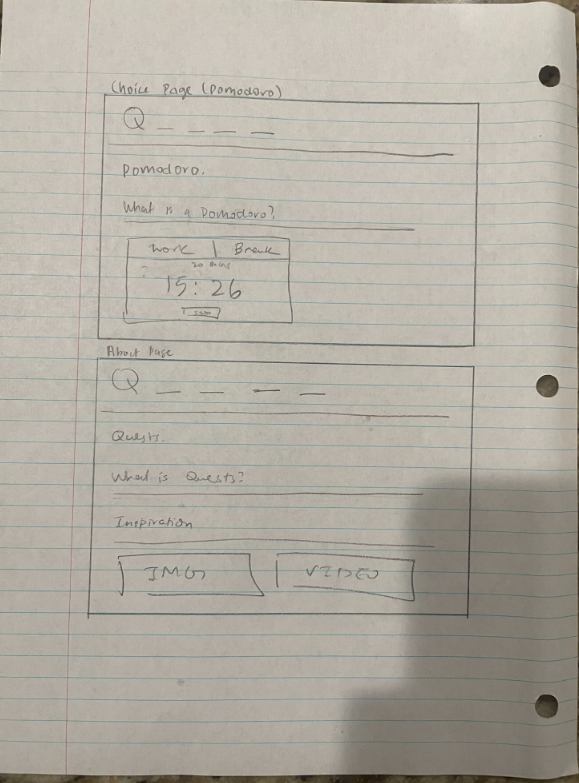 Choice Page (Pomodoro)
Q
Pomodoro.
What is a Pomodoro?
Work | Break
20 mins
15:26
About Page
Q
Quests.
What is Quests?
Inspiration
IMG
VIDEO